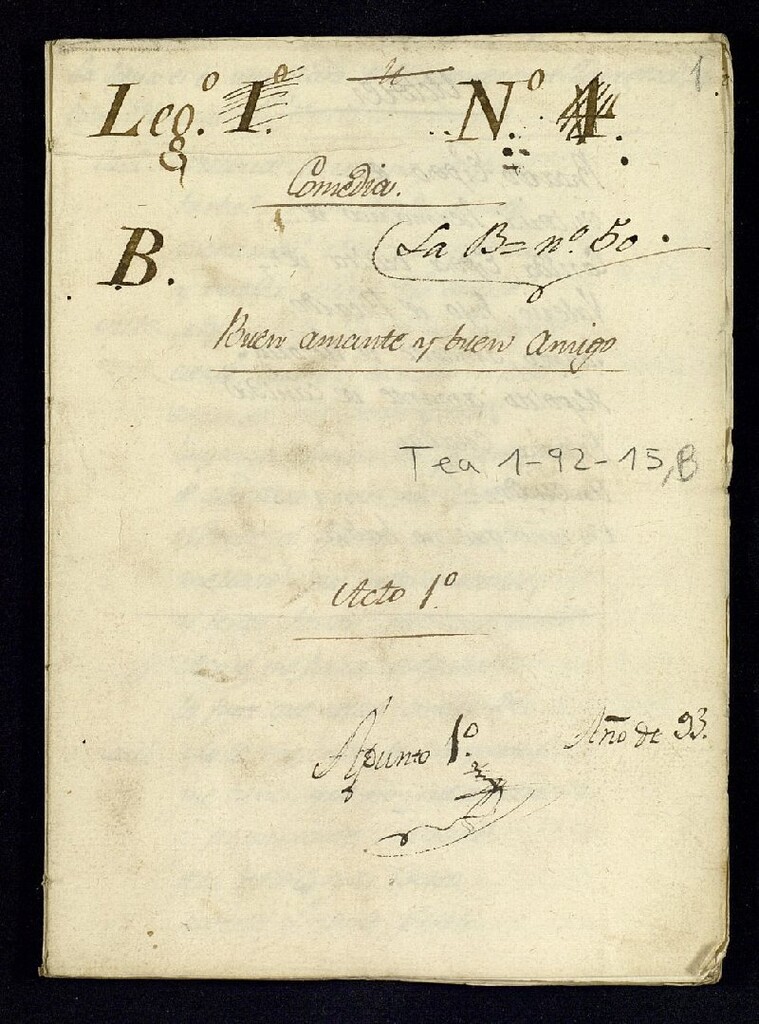 1
Leg.º 1.º Nº 4.
Comedia.
B. La B= nº 50.
Buen amante y buen Amigo
Tea 1-92-15, B
Acto 1º
Apunto 1.º Año de 93.